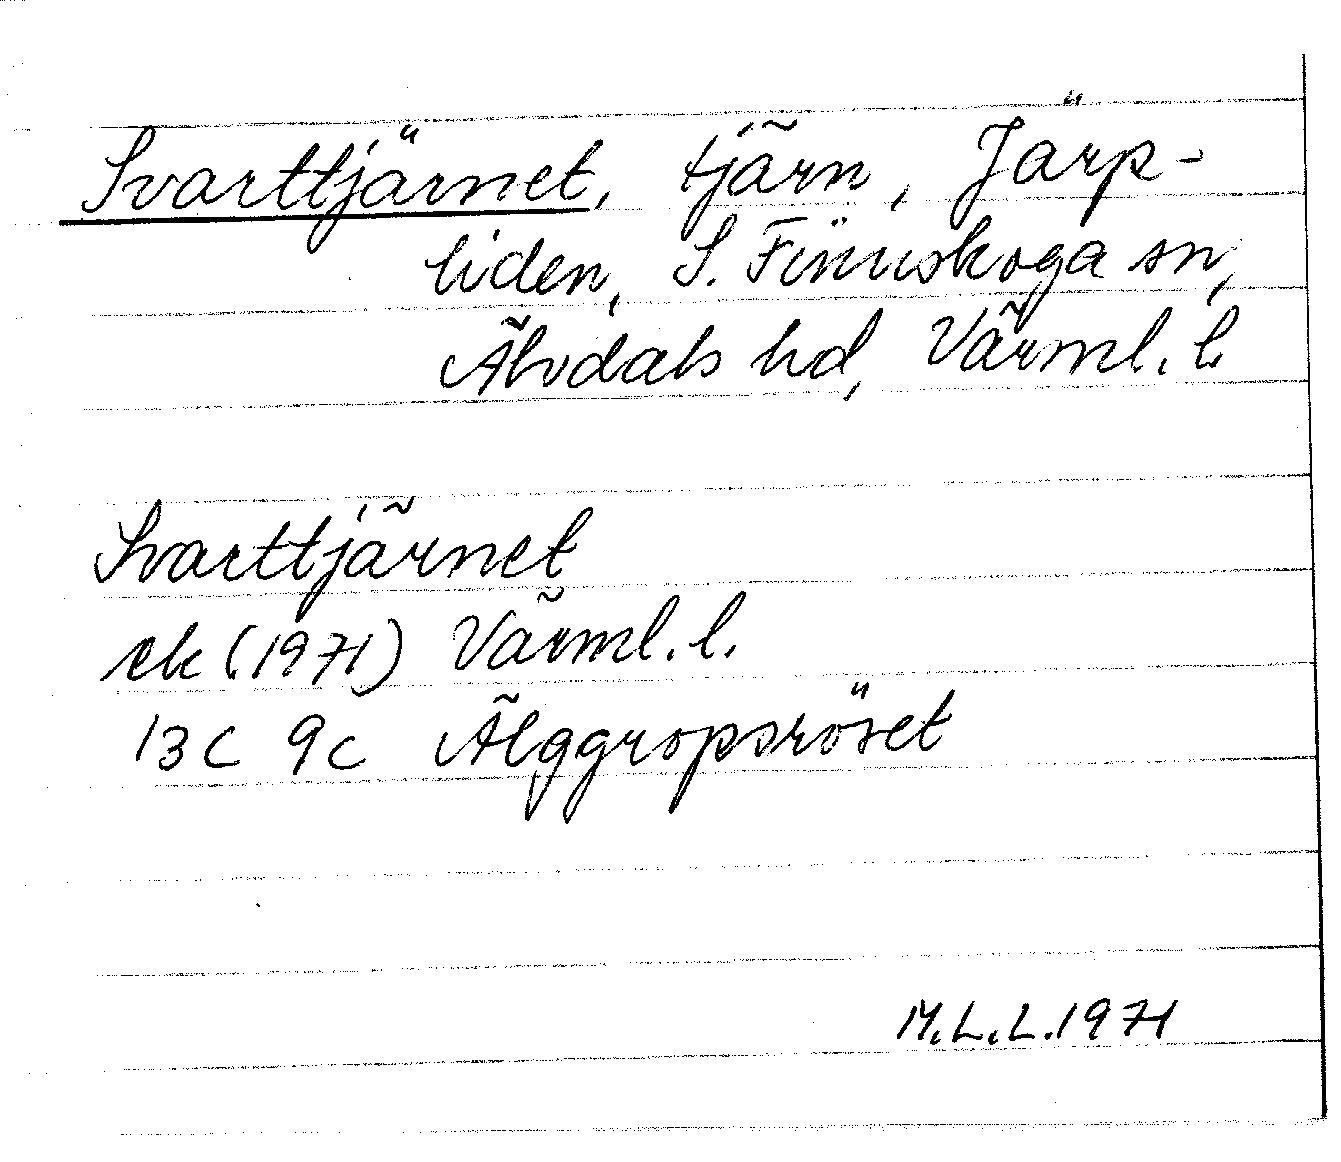 Svarttjärnet, tjärn, Järp-
liden, S. Finnskoga sn,
Älvdals hd, Värml. l.
Svarttjärnet
ek (1971) Värml. l.
13C 9c Älggropsröset
M.L.L. 1971